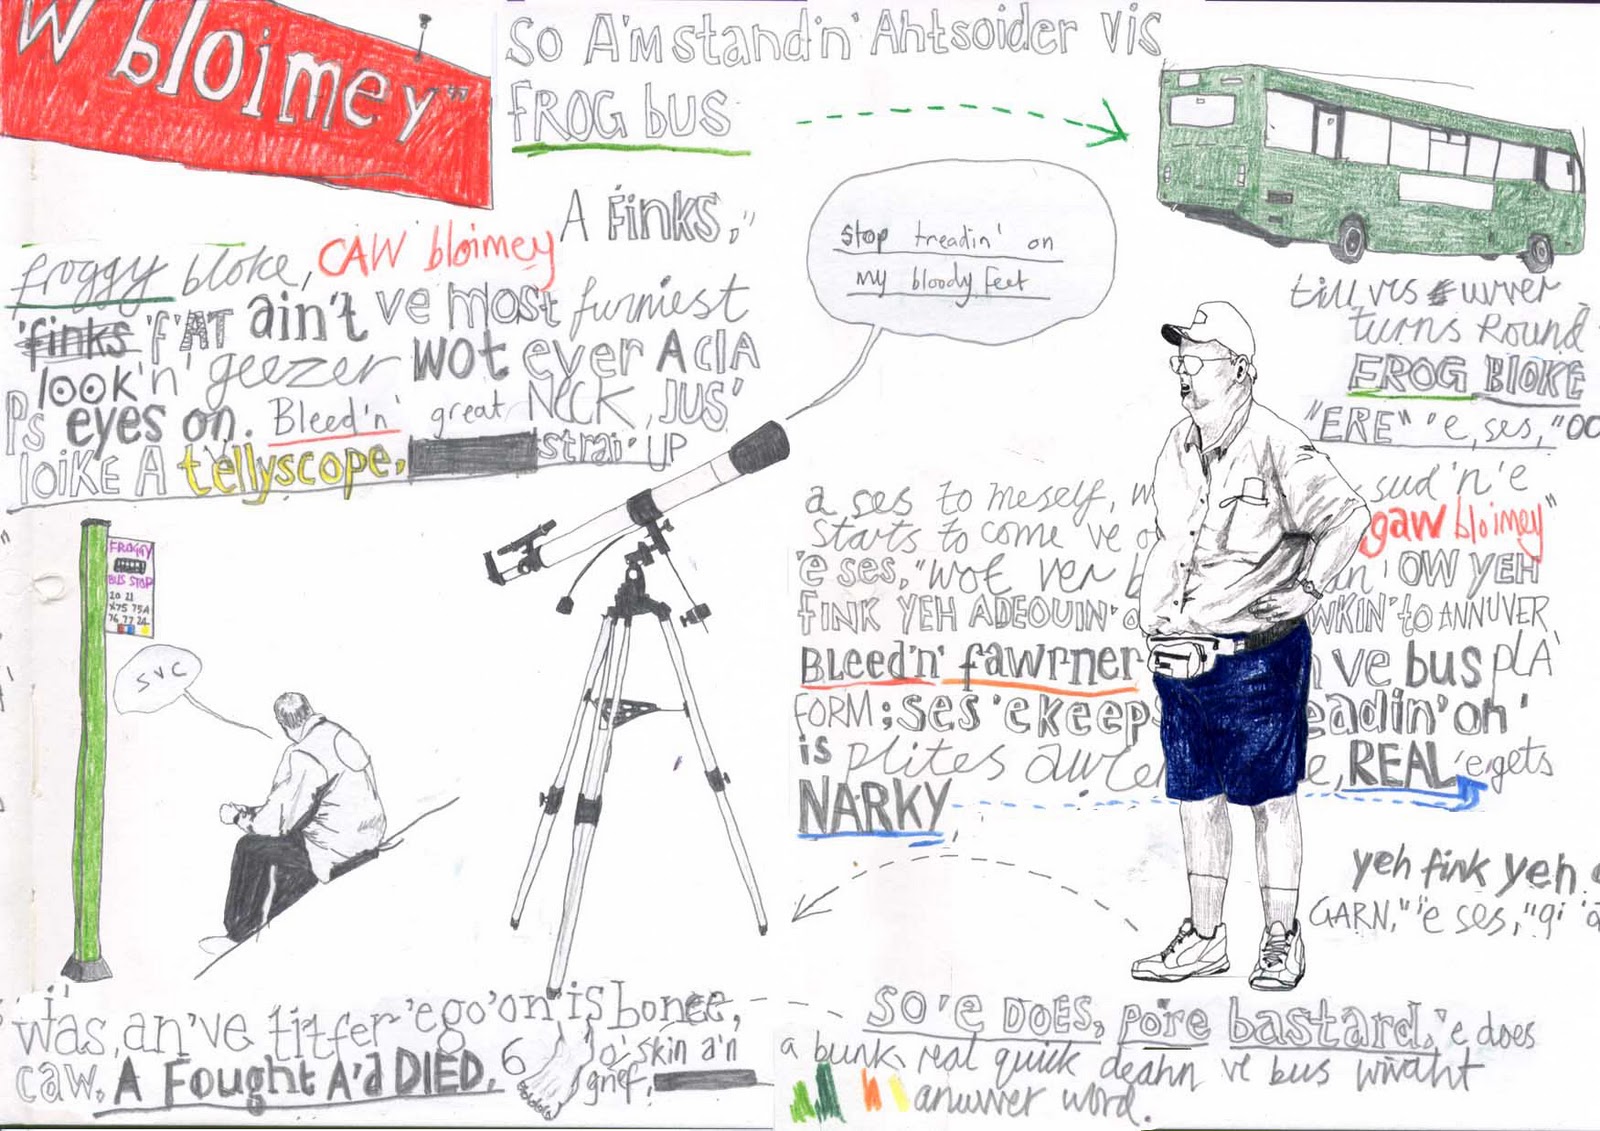 W bloimey"
So A'm stand'n' Ahtsoider vis
FROG bus
A Finks,"
froggy bloke, CAW bloimey
'finks 'f'AT ain't ve most funniest
look'n' geezer wot ever A clA
Ps eyes on. Bleed'n' great NECK, JUS'
loike A tellyscope, strai' UP
stop treadin' on
my bloody feet
till vis uvver
turns Round
FROG BLOKE
"ERE" 'e, ses, "OO
a ses to meself, sud'n 'e
starts to come ve gaw bloimey"
'e ses, "wot ver OW YEH
FINK YEH ADEQUIN' WKIN' to ANNUVER
Bleed'n' fawrner ve bus plA
FORM; ses 'e keeps eadin' on'
is plites REAL 'e, gets
NARKY,
FROGGY
BUS STOP
20 21
X75 75A
76 77 24
SVC
yeh fink yeh
GARN," 'e ses, "gi 'a
i'
was, an' ve titfer 'e go' on 'is bonce,
caw, A Fought A'd DIED, 6 o' skin a'n
grief,
So 'e DOES, pore bastard, 'e does
a bunk, real quick deahn ve bus wivaht
anuvver word.